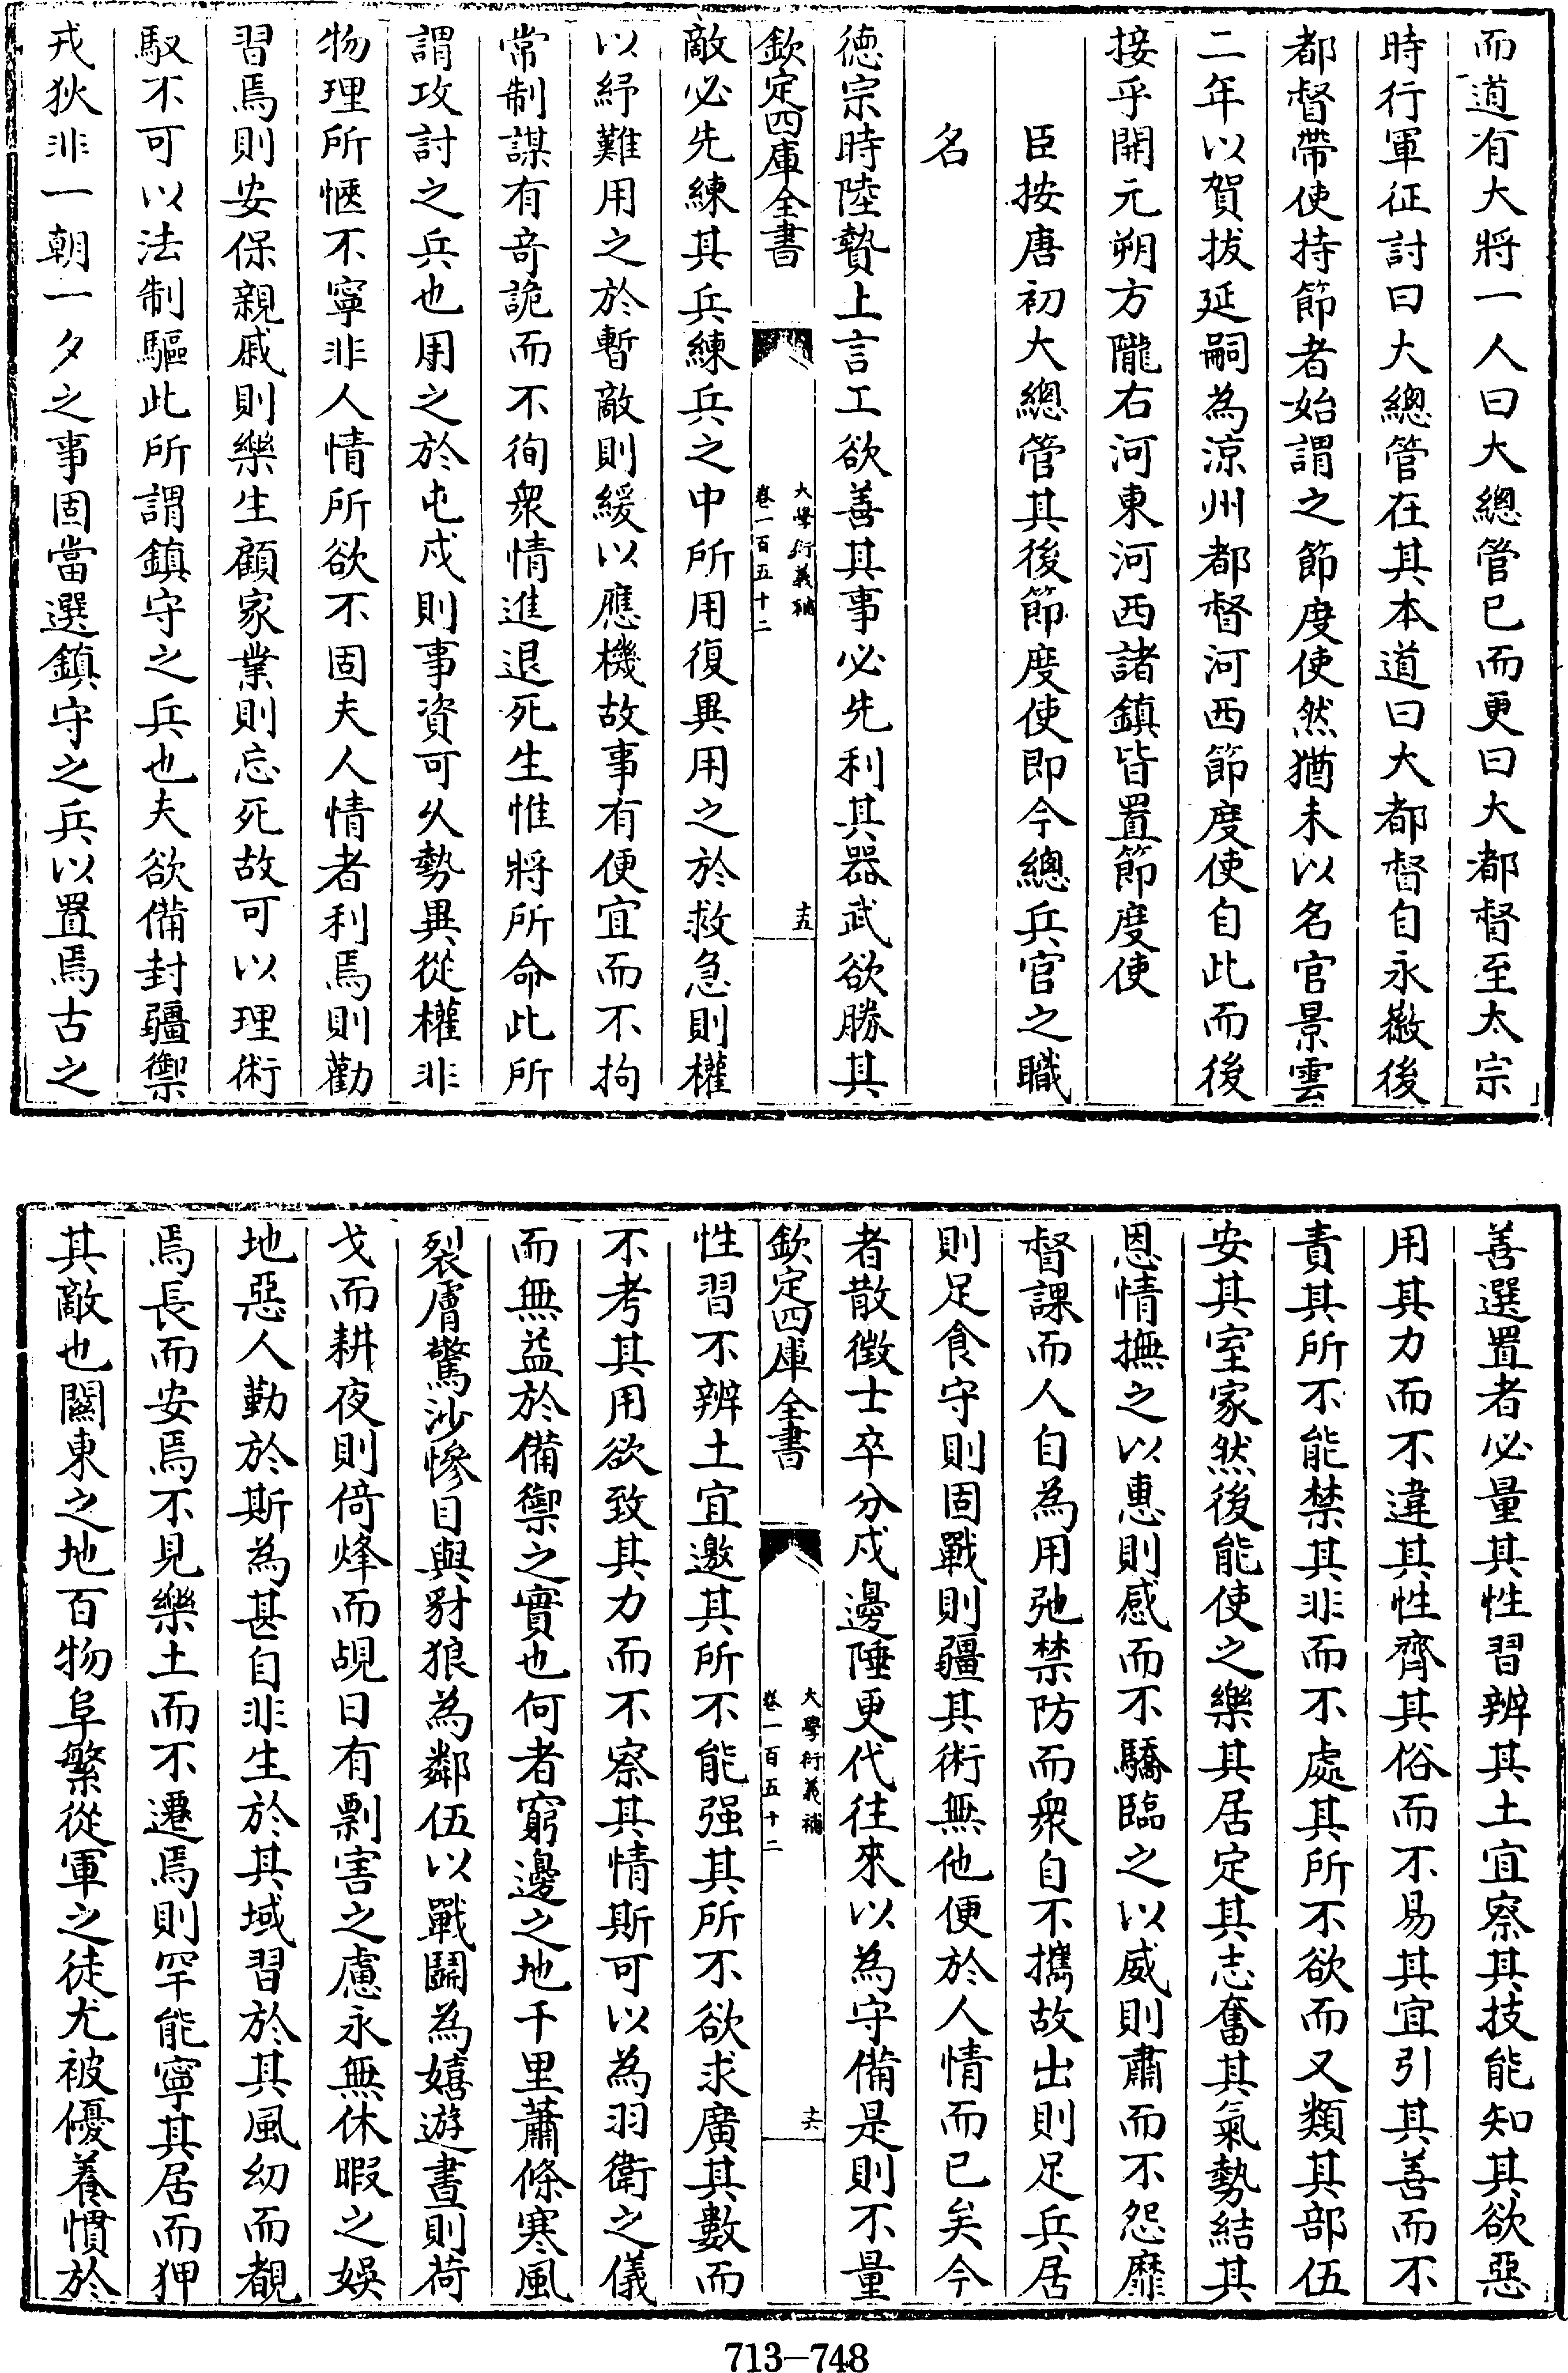 而道有大將一人曰大總管已而更曰大都督至太宗
時行軍征討曰大總管在其本道曰大都督自永徽後
都督帶使持節者始謂之節度使然猶未以名官景雲
二年以賀拔延嗣為涼州都督河西節度使自此而後
接乎開元朔方隴右河東河西諸鎮皆置節度使
臣按唐初大總管其後節度使即今總兵官之職
名
德宗時陸贄上言工欲善其事必先利其器武欲勝其
欽定四庫全書
大學衍義補
卷一百五十二
十五
敵必先練其兵練兵之中所用復異用之於救急則權
以紓難用之於暫敵則緩以應機故事有便宜而不拘
常制謀有奇詭而不徇衆情進退死生惟將所命此所
謂攻討之兵也用之於屯戍則事資可久勢異從權非
物理所愜不寧非人情所欲不固夫人情者利焉則勸
習焉則安保親戚則樂生顧家業則忘死故可以理術
馭不可以法制驅此所謂鎮守之兵也夫欲備封疆禦
戎狄非一朝一夕之事固當選鎮守之兵以置焉古之
善選置者必量其性習辨其土宜察其技能知其欲惡
用其力而不違其性齊其俗而不易其宜引其善而不
責其所不能禁其非而不處其所不欲而又類其部伍
安其室家然後能使之樂其居定其志奮其氣勢結其
恩情撫之以惠則感而不驕臨之以威則肅而不怨靡
督課而人自為用弛禁防而衆自不攜故出則足兵居
則足食守則固戰則疆其術無他便於人情而已矣今
者散徵士卒分戍邊陲更代往來以為守備是則不量
欽定四庫全書
大學衍義補
卷一百五十二
十六
性習不辨土宜邀其所不能强其所不欲求廣其數而
不考其用欲致其力而不察其情斯可以為羽衛之儀
而無益於備禦之實也何者窮邊之地千里蕭條寒風
裂膚驚沙慘目與豺狼為鄰伍以戰鬬為嬉遊晝則荷
戈而耕夜則倚烽而覘日有剽害之慮永無休暇之娛
地惡人勤於斯為甚自非生於其域習於其風幼而覩
焉長而安焉不見樂土而不遷焉則罕能寧其居而狎
其敵也關東之地百物阜繁從軍之徒尤被優養慣於
713-748